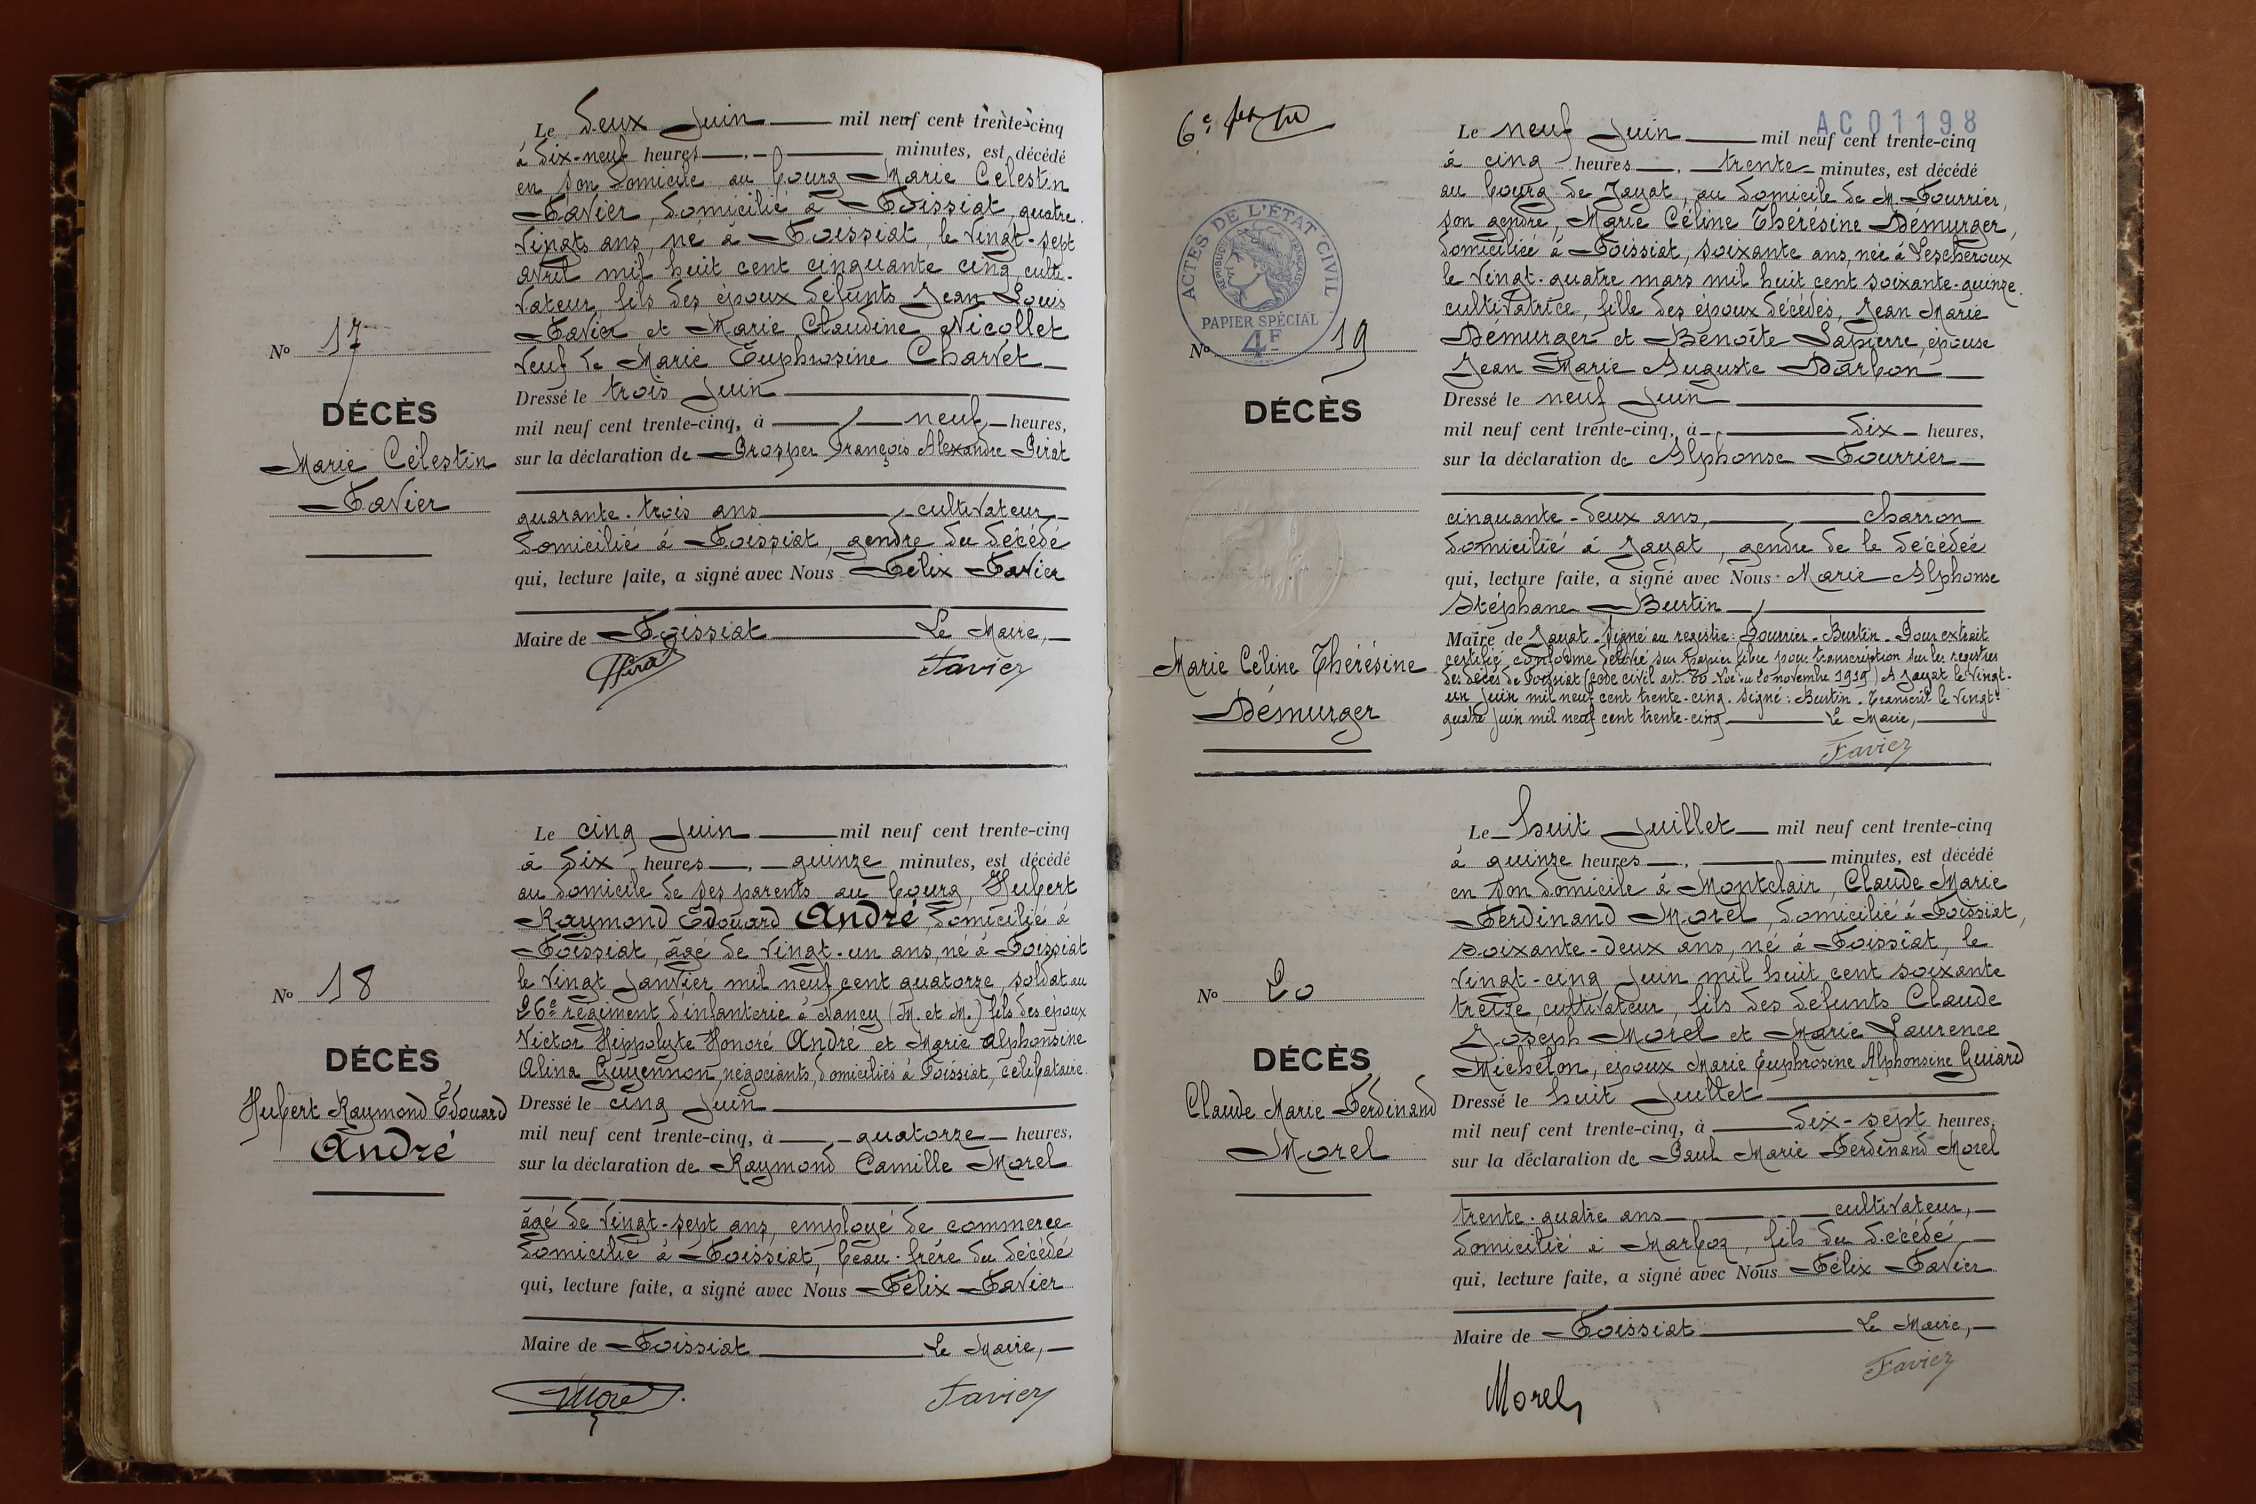 Le deux Juin mil neuf cent trente-cinq
à dix-neuf heures minutes, est décédé
en son domicile au bourg Marie Célestin
Favier, domicilié à Foissiat, quatre
vingts ans, né à Foissiat, le vingt-sept
avril mil huit cent cinquante cinq, culti-
vateur, fils des époux défunts Jean Louis
Favier et Marie Claudine Nicollet
veuf de Marie Euphrosine Charvet
Nº 17
DÉCÈS
Marie Célestin
Favier
Dressé le trois Juin
mil neuf cent trente-cinq, à neuf heures,
sur la déclaration de Prosper François Alexandre Pirat
quarante-trois ans, cultivateur
domicilié à Foissiat, gendre du décédé
qui, lecture faite, a signé avec Nous Félix Favier
Maire de Foissiat Le Maire,
Pirat Favier
Le cinq Juin mil neuf cent trente-cinq
à six heures quinze minutes, est décédé
au domicile de ses parents au bourg, Hubert
Raymond Edouard André domicilié à
Foissiat, âgé de vingt-un ans, né à Foissiat
le vingt Janvier mil neuf cent quatorze, soldat au
26e régiment d'infanterie à Nancy (M. et M.) fils des époux
Victor Hippolyte Honoré André et Marie Alphonsine
Alina Guyennon, négociants, domiciliés à Foissiat, célibataire
Nº 18
DÉCÈS
Hubert Raymond Edouard
André
Dressé le cinq Juin
mil neuf cent trente-cinq, à quatorze heures,
sur la déclaration de Raymond Camille Morel
âgé de vingt-sept ans, employé de commerce
domicilié à Foissiat, beau-frère du décédé
qui, lecture faite, a signé avec Nous Félix Favier
Maire de Foissiat Le Maire,
Morel Favier
6e
AC01198
ACTES DE L'ÉTAT CIVIL
RÉPUBLIQUE FRANÇAISE
PAPIER SPÉCIAL
4F
Le neuf Juin mil neuf cent trente-cinq
à cinq heures trente minutes, est décédé
au bourg de Jayat, au domicile de M. Fourrier,
son gendre, Marie Céline Thérésine Démurger,
domiciliée à Foissiat, soixante ans, née à Lescheroux
le vingt-quatre mars mil huit cent soixante-quinze
cultivatrice, fille des époux décédés, Jean Marie
Démurger et Benoîte Lapierre, épouse
Jean Marie Auguste Darbon
Nº 19
DÉCÈS
Marie Céline Thérésine
Démurger
Dressé le neuf Juin
mil neuf cent trente-cinq, à dix heures,
sur la déclaration de Alphonse Fourrier
cinquante-deux ans, charron
domicilié à Jayat, gendre de le décédée
qui, lecture faite, a signé avec Nous Marie Alphonse
Stéphane Burtin
Maire de Jayat. Signé au registre: Fourrier - Burtin - Pour extrait
certifié conforme délivré sur papier libre pour transcription sur les registres
des décès de Foissiat (code civil art. 80 Loi du 20 novembre 1919) A Jayat le vingt-
un Juin mil neuf cent trente-cinq. Signé: Burtin. Transcrit le vingt-
quatre Juin mil neuf cent trente-cinq Le Maire,
Favier
Le huit Juillet mil neuf cent trente-cinq
à quinze heures minutes, est décédé
en son domicile à Montclair, Claude Marie
Ferdinand Morel, domicilié à Foissiat,
soixante-deux ans, né à Foissiat, le
vingt-cinq Juin mil huit cent soixante
treize, cultivateur, fils des défunts Claude
Joseph Morel et Marie Laurence
Michelon, époux Marie Euphrosine Alphonsine Guiard
Nº 20
DÉCÈS
Claude Marie Ferdinand
Morel
Dressé le huit Juillet
mil neuf cent trente-cinq, à dix-sept heures,
sur la déclaration de Paul Marie Ferdinand Morel
trente-quatre ans cultivateur,
domicilié à Marboz, fils du décédé
qui, lecture faite, a signé avec Nous Félix Favier
Maire de Foissiat Le Maire,
Morel Favier